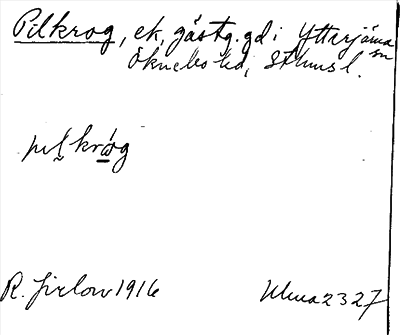 Pilkrog, ek, gästg.gd i Ytterjärna
sn
Öknebo hd, Sthmsl.
pil krog
R. Jirlow 1916 Ulma 2327